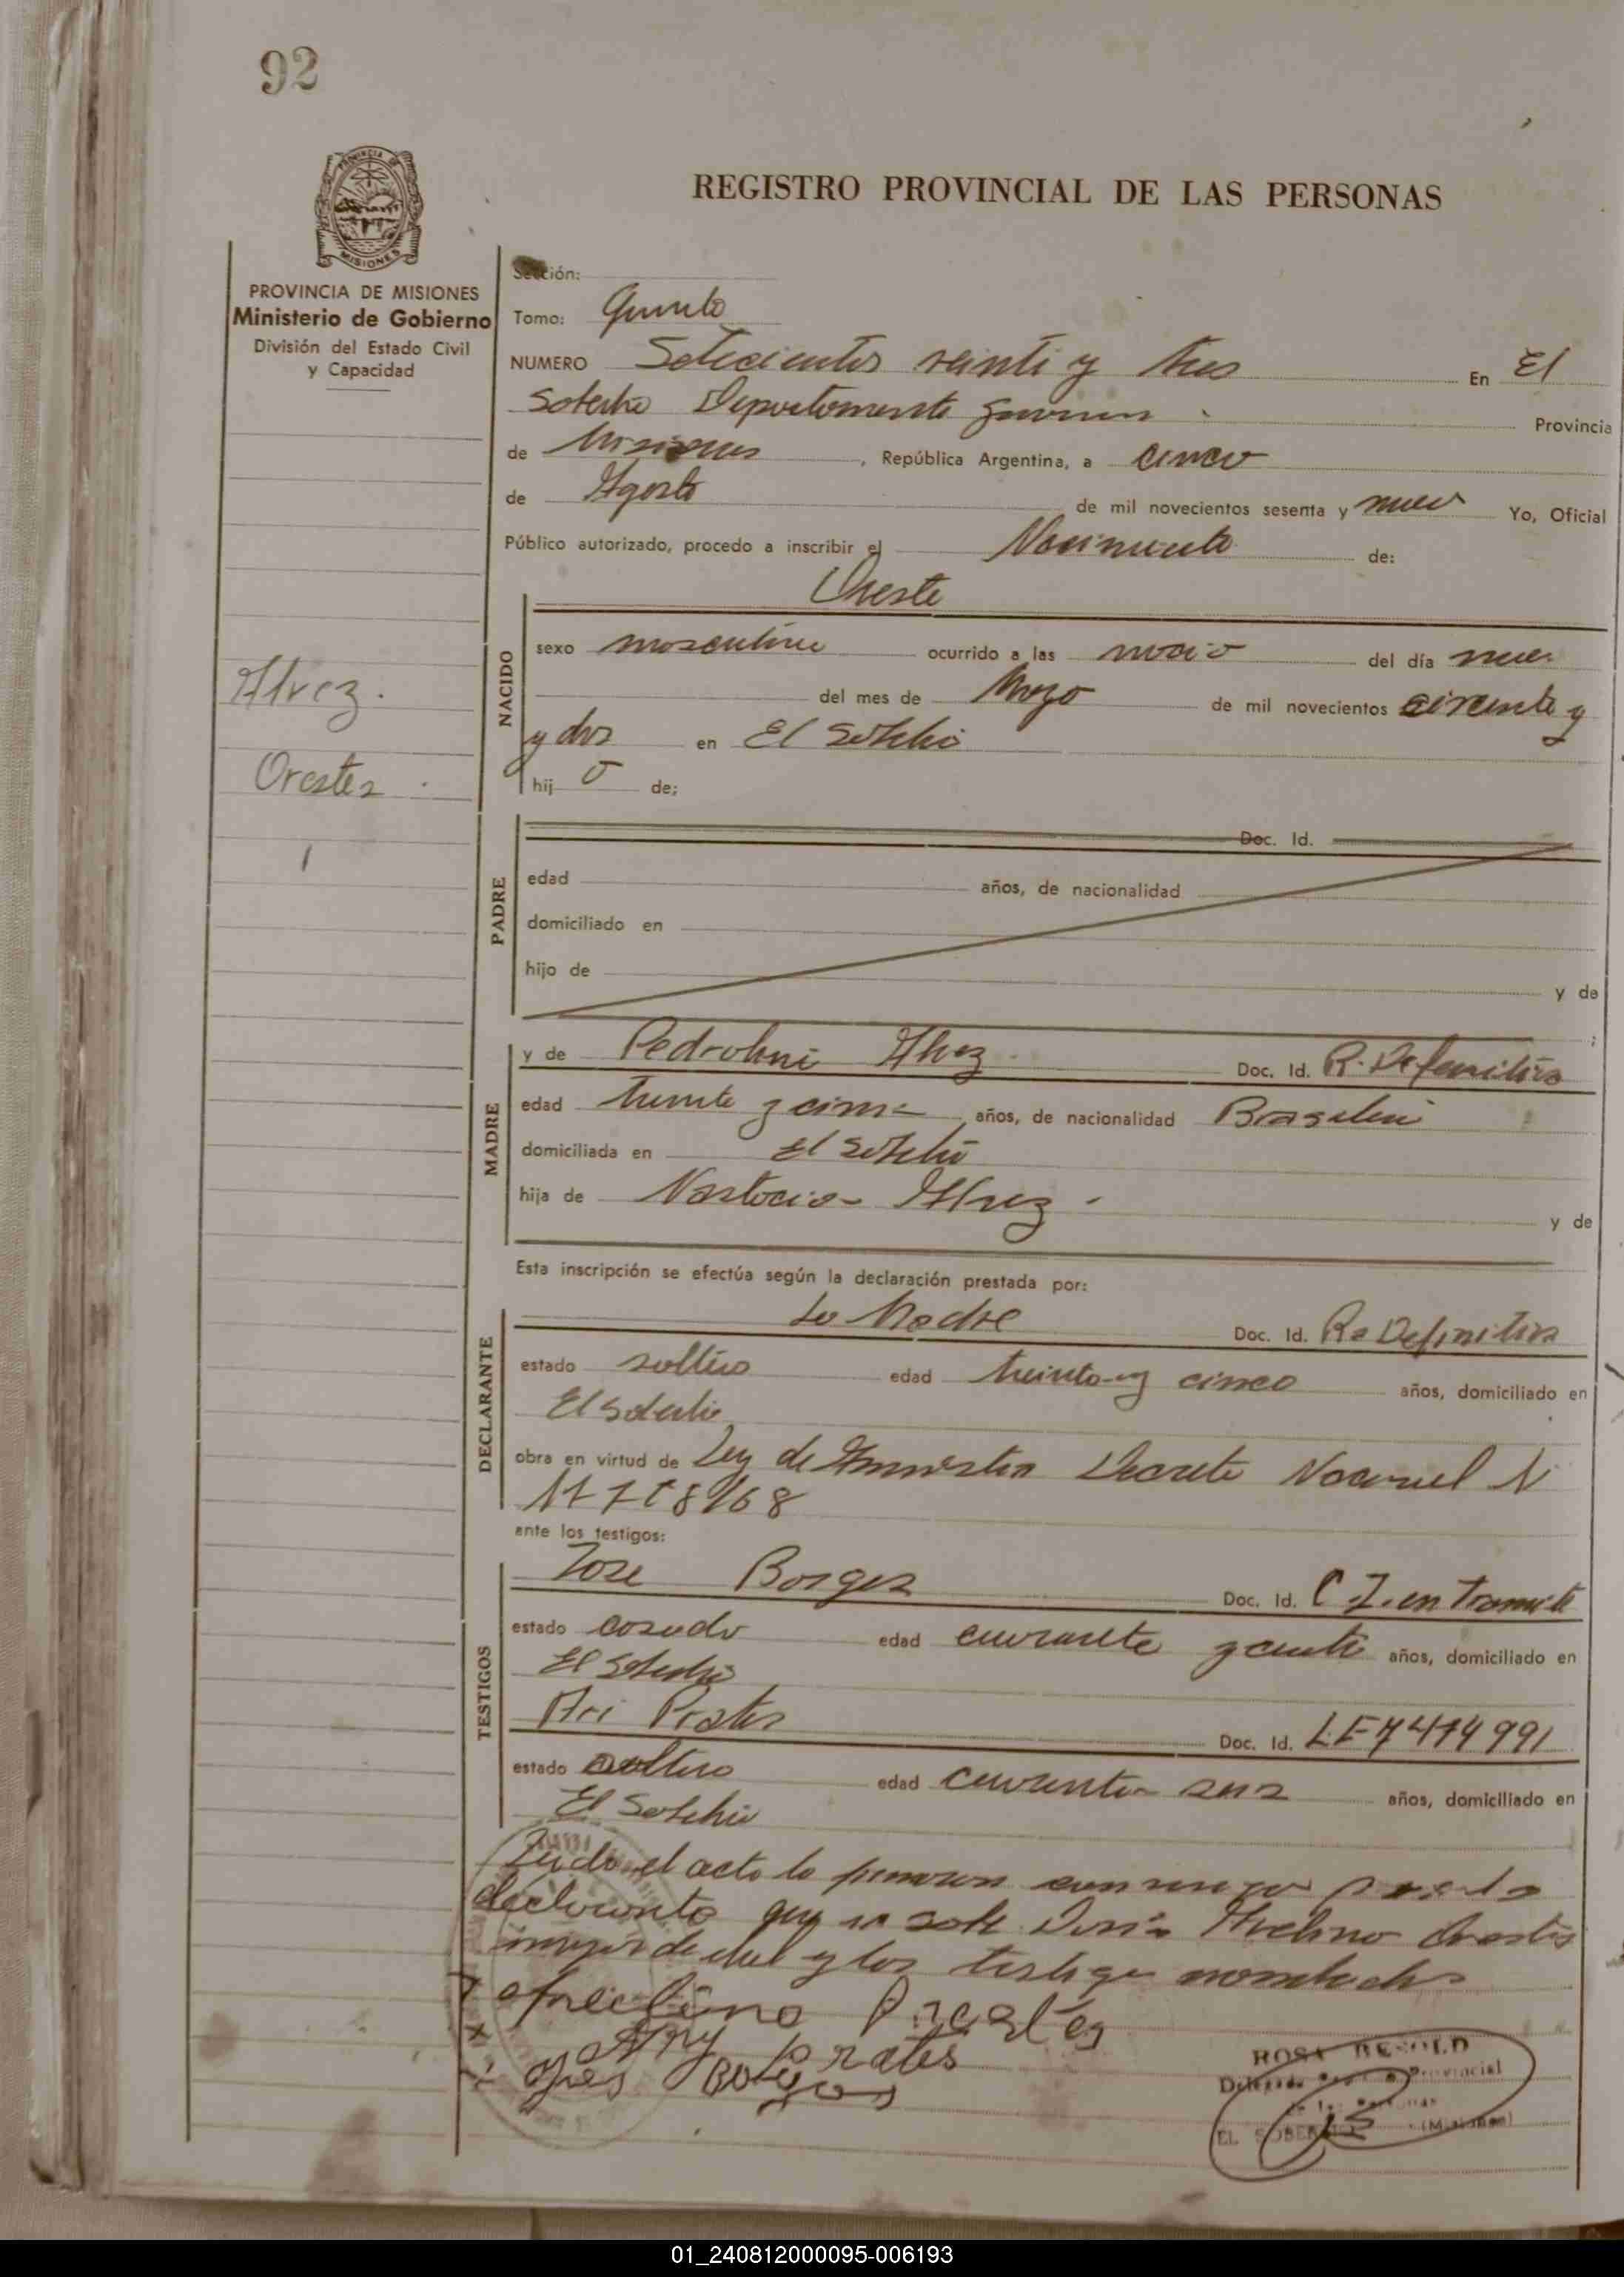 92
PROVINCIA DE
MISIONES
REGISTRO PROVINCIAL DE LAS PERSONAS
PROVINCIA DE MISIONES
Ministerio de Gobierno
División del Estado Civil
y Capacidad
Sección:
Tomo: Quinto
NUMERO Setecientos veinti y tres En El
Soberbio Departamento Guarani Provincia
de Misiones, República Argentina, a cinco
de Agosto de mil novecientos sesenta y nueve Yo, Oficial
Público autorizado, procedo a inscribir el Nacimiento de:
Oreste
NACIDO
sexo masculino ocurrido a las del día nueve
del mes de Mayo de mil novecientos cincuenta y
y dos en El Soberbio
hijo de;
Alvez.
Orestes
PADRE
Doc. Id.
edad años, de nacionalidad
domiciliado en
hijo de y de
MADRE
y de Alvez Doc. Id. R. Definitiva
edad treinta y cinco años, de nacionalidad Brasilera
domiciliada en El Soberbio
hija de Alvez y de
Esta inscripción se efectúa según la declaración prestada por:
DECLARANTE
La Madre Doc. Id. Ra Definitiva
estado soltera edad treinta y cinco años, domiciliado en
El Soberbio
obra en virtud de Ley de Amnistia Decreto Nacional N
ante los testigos:
TESTIGOS
Jose Borges Doc. Id. C.I. en Tramite
estado casado edad cuarenta y años, domiciliado en
El Soberbio
Ari Prates Doc. Id. LE 7474991
estado soltero edad cuarenta años, domiciliado en
El Soberbio
Leido el acta la firman por la
declarante que no sabe Avelino Orestes
mayor de edad y los testigos nombrados
Avelino Orestes
Ary Prates
Borges
ROSA BESOLD
Delegada Provincial
de las Personas
EL SOBERBIO (Misiones)
01_240812000095-006193